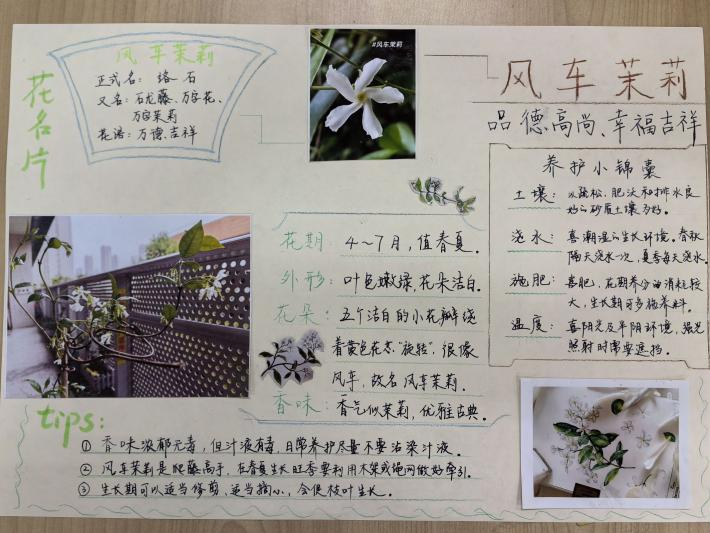 花名片
风车茉莉
正式名：络石
又名：石龙藤、万字花、
万字茉莉
花语：万德、吉祥
#风车茉莉
风车茉莉
品德高尚、幸福吉祥
养护小锦囊
土壤：以疏松、肥沃和排水良
好的砂质土壤为好。
浇水：喜潮湿的生长环境。春秋
隔天浇水一次，夏季每天浇水。
施肥：喜肥，花期养分的消耗较
大，生长期可多施养料。
温度：喜阳光及半阴环境，强光
照射时需要遮挡。
花期：4～7月，值春夏。
外形：叶色嫩绿，花朵洁白。
花朵：五个洁白的小花瓣绕
着黄色花芯“旋转”，很像
风车，故名风车茉莉。
香味：香气似茉莉，优雅古典。
tips：
① 香味浓郁无毒，但汁液有毒，日常养护尽量不要沾染汁液。
② 风车茉莉是爬藤高手，在春夏生长旺季要利用木架或绳网做好牵引。
③ 生长期可以适当修剪、适当摘心，会促枝叶生长。